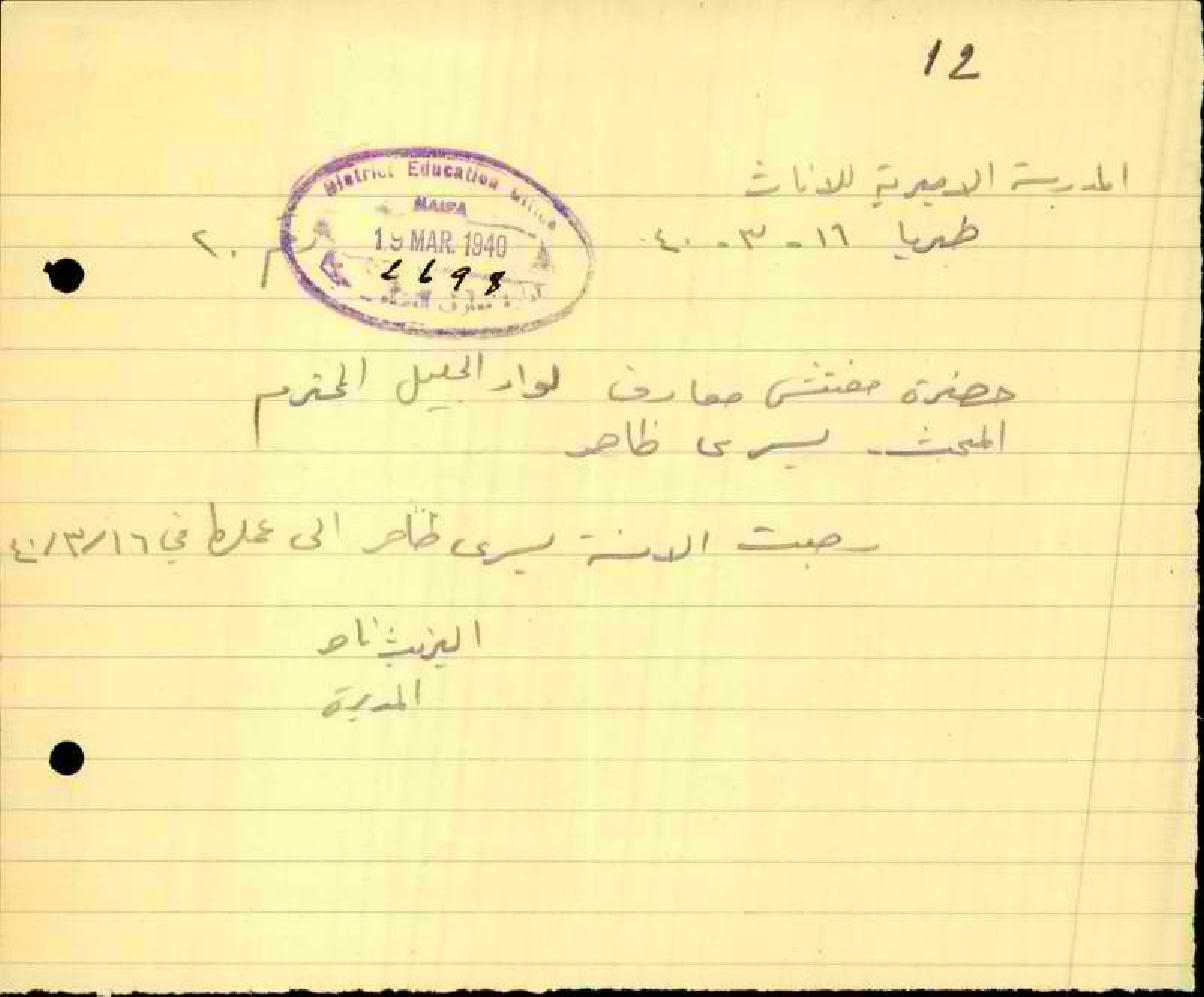 12
المدرسة الاميرية للاناث
طبريا ١٦ - ٣ - ٤٠
رقم ٢٠
District Education Office
HAIFA
19 MAR. 1940
إدارة معارف
حضرة مفتش معارف لواء الجليل المحترم
المبحث - يسرى ظاهر
رجعت الانسة يسرى ظاهر الى عملها في ٤٠/٣/١٦
اليزبيث
المديرة